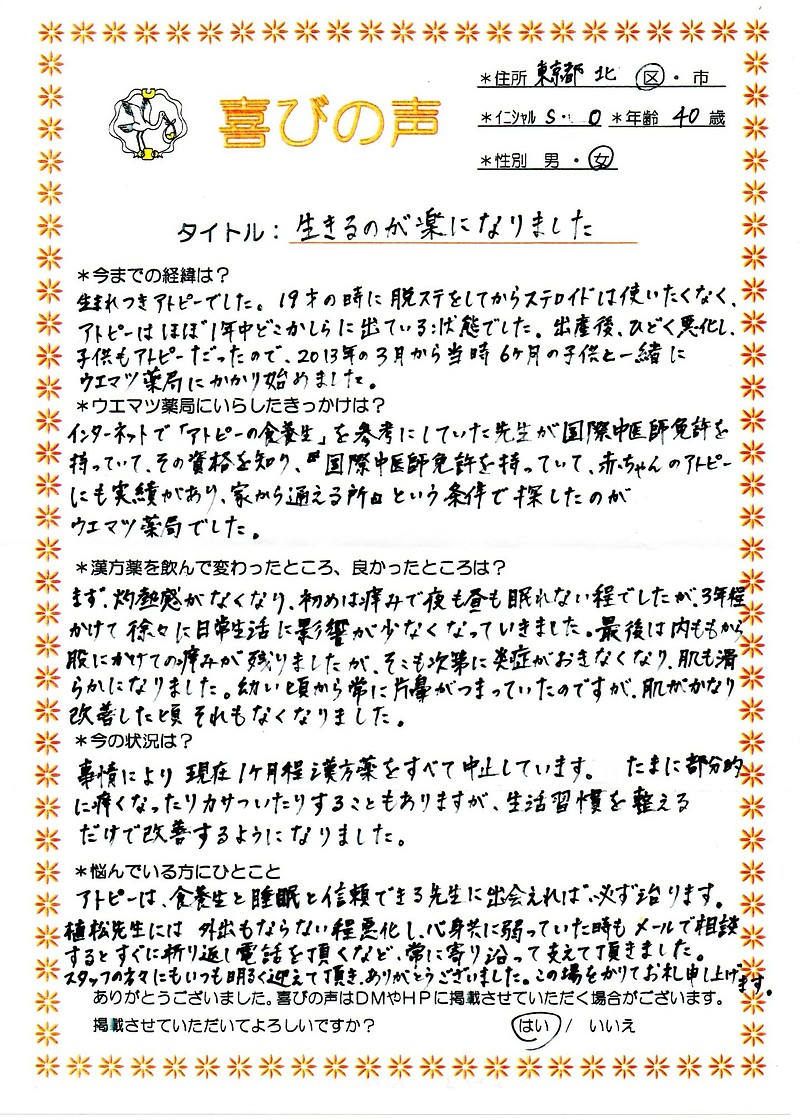 喜びの声
*住所 東京都 北 区・市
*イニシャル S・O *年齢 40 歳
*性別 男・女
タイトル：生きるのが楽になりました
*今までの経緯は？
生まれつきアトピーでした。19才の時に脱ステをしてからステロイドは使いたくなく、
アトピーはほぼ1年中どこかしらに出ている状態でした。出産後、ひどく悪化し、
子供もアトピーだったので、2013年の3月から当時6ヶ月の子供と一緒に
ウエマツ薬局にかかり始めました。
*ウエマツ薬局にいらしたきっかけは？
インターネットで「アトピーの食養生」を参考にしていた先生が国際中医師免許を
持っていて、その資格を知り、国際中医師免許を持っていて、赤ちゃんのアトピー
にも実績があり、家から通える所という条件で探したのが
ウエマツ薬局でした。
*漢方薬を飲んで変わったところ、良かったところは？
まず、灼熱感がなくなり、初めは痒みで夜も昼も眠れない程でしたが、3年程
かけて徐々に日常生活に影響が少なくなっていきました。最後は内ももから
股にかけての痒みが残りましたが、そこも次第に炎症がおきなくなり、肌も滑
らかになりました。幼い頃から常に片鼻がつまっていたのですが、肌がかなり
改善した頃それもなくなりました。
*今の状況は？
事情により現在1ヶ月程漢方薬をすべて中止しています。 たまに部分的
に痒くなったりカサついたりすることもありますが、生活習慣を整える
だけで改善するようになりました。
*悩んでいる方にひとこと
アトピーは、食養生と睡眠と信頼できる先生に出会えれば、必ず治ります。
植松先生には 外出もならない程悪化し、心身共に弱っていた時も メールで相談
するとすぐに折り返し電話を頂くなど、常に寄り沿って支えて頂きました。
スタッフの方々にもいつも明るく迎えて頂き、ありがとうございました。この場をかりてお礼申し上げます。
ありがとうございました。喜びの声はDMやHPに掲載させていただく場合がございます。
掲載させていただいてよろしいですか？ はい / いいえ